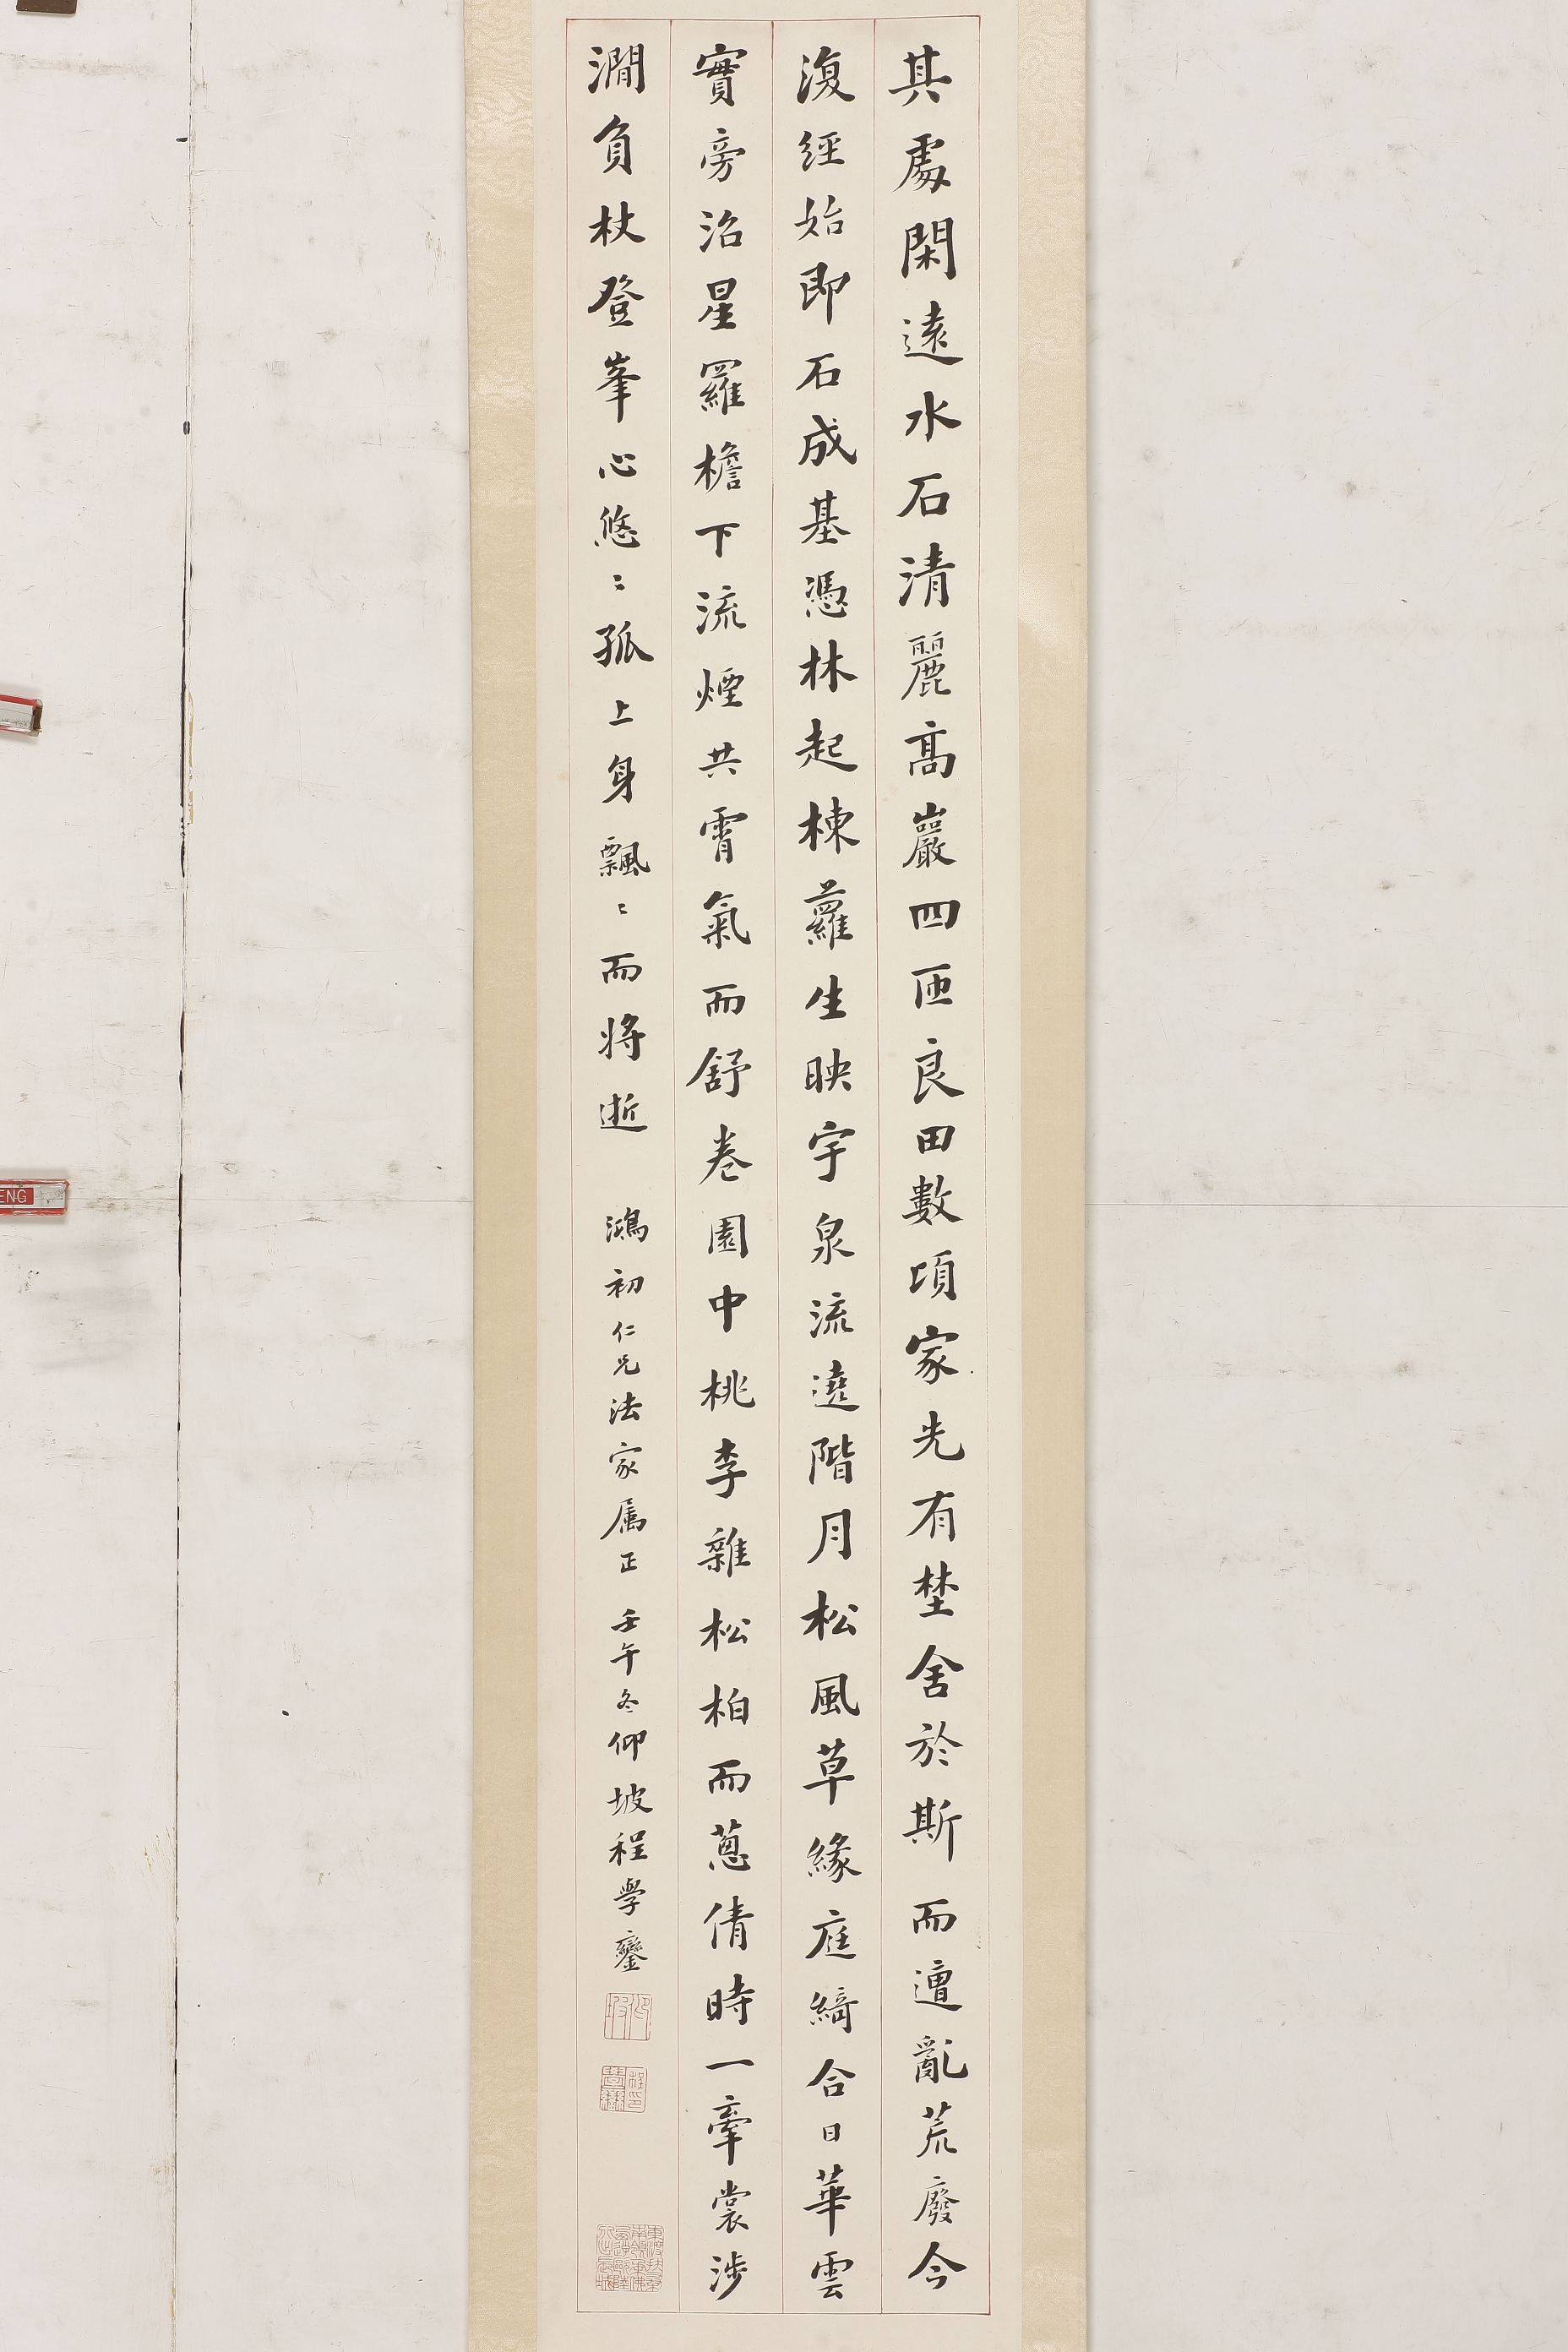 其處閑遠水石清麗高巖四匝良田數頃家先有埜舍於斯而遭亂荒廢今
復經始即石成基憑林起棟蘿生映宇泉流遶階月松風草緣庭綺合日華雲
實旁沿星羅檐下流煙共霄氣而舒卷園中桃李雜松柏而蔥倩時一牽裳涉
澗負杖登峯心悠〻孤上身飄〻而將逝
鴻初仁兄法家属正 壬午冬仰坡程學鑾
ENG